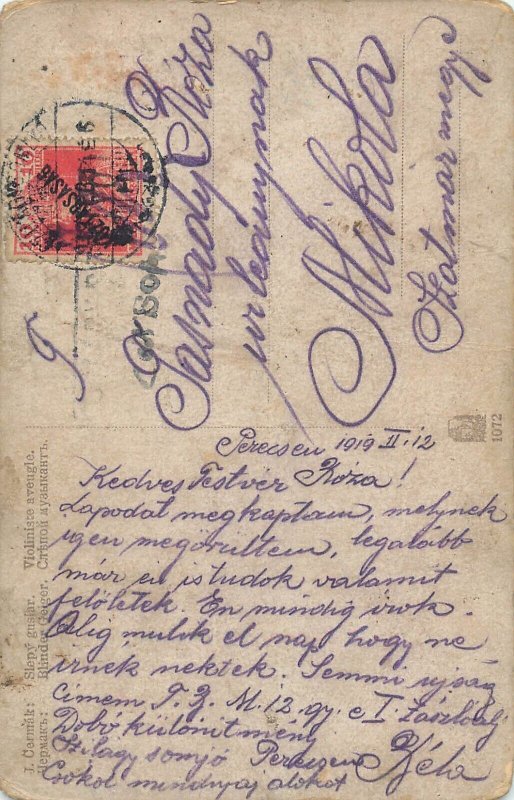 T.
Pasnady Róza
urleánynak
Mikola
Szatmár megye
CENZURAT
1072
Perecsen 1919 II. 12
Kedves Testvér Róza!
Lapodat megkaptam, melynek
igen megörültem, legalább
már én is tudok valamit
felőletek. Én mindig írok.
Alig mulik el nap hogy ne
írnék nektek. Semmi ujság
Címem T. Z. M. 12. gy. e I. zászlóalj
Dobó különitmény
Szilagy somjó Perecsen
Csokol mindnyájatokat Béla
J. Čermák: Slepý guslar. Violiniste aveugle.
Чермакъ: Blinder Geiger. Слѣпой музыкантъ.